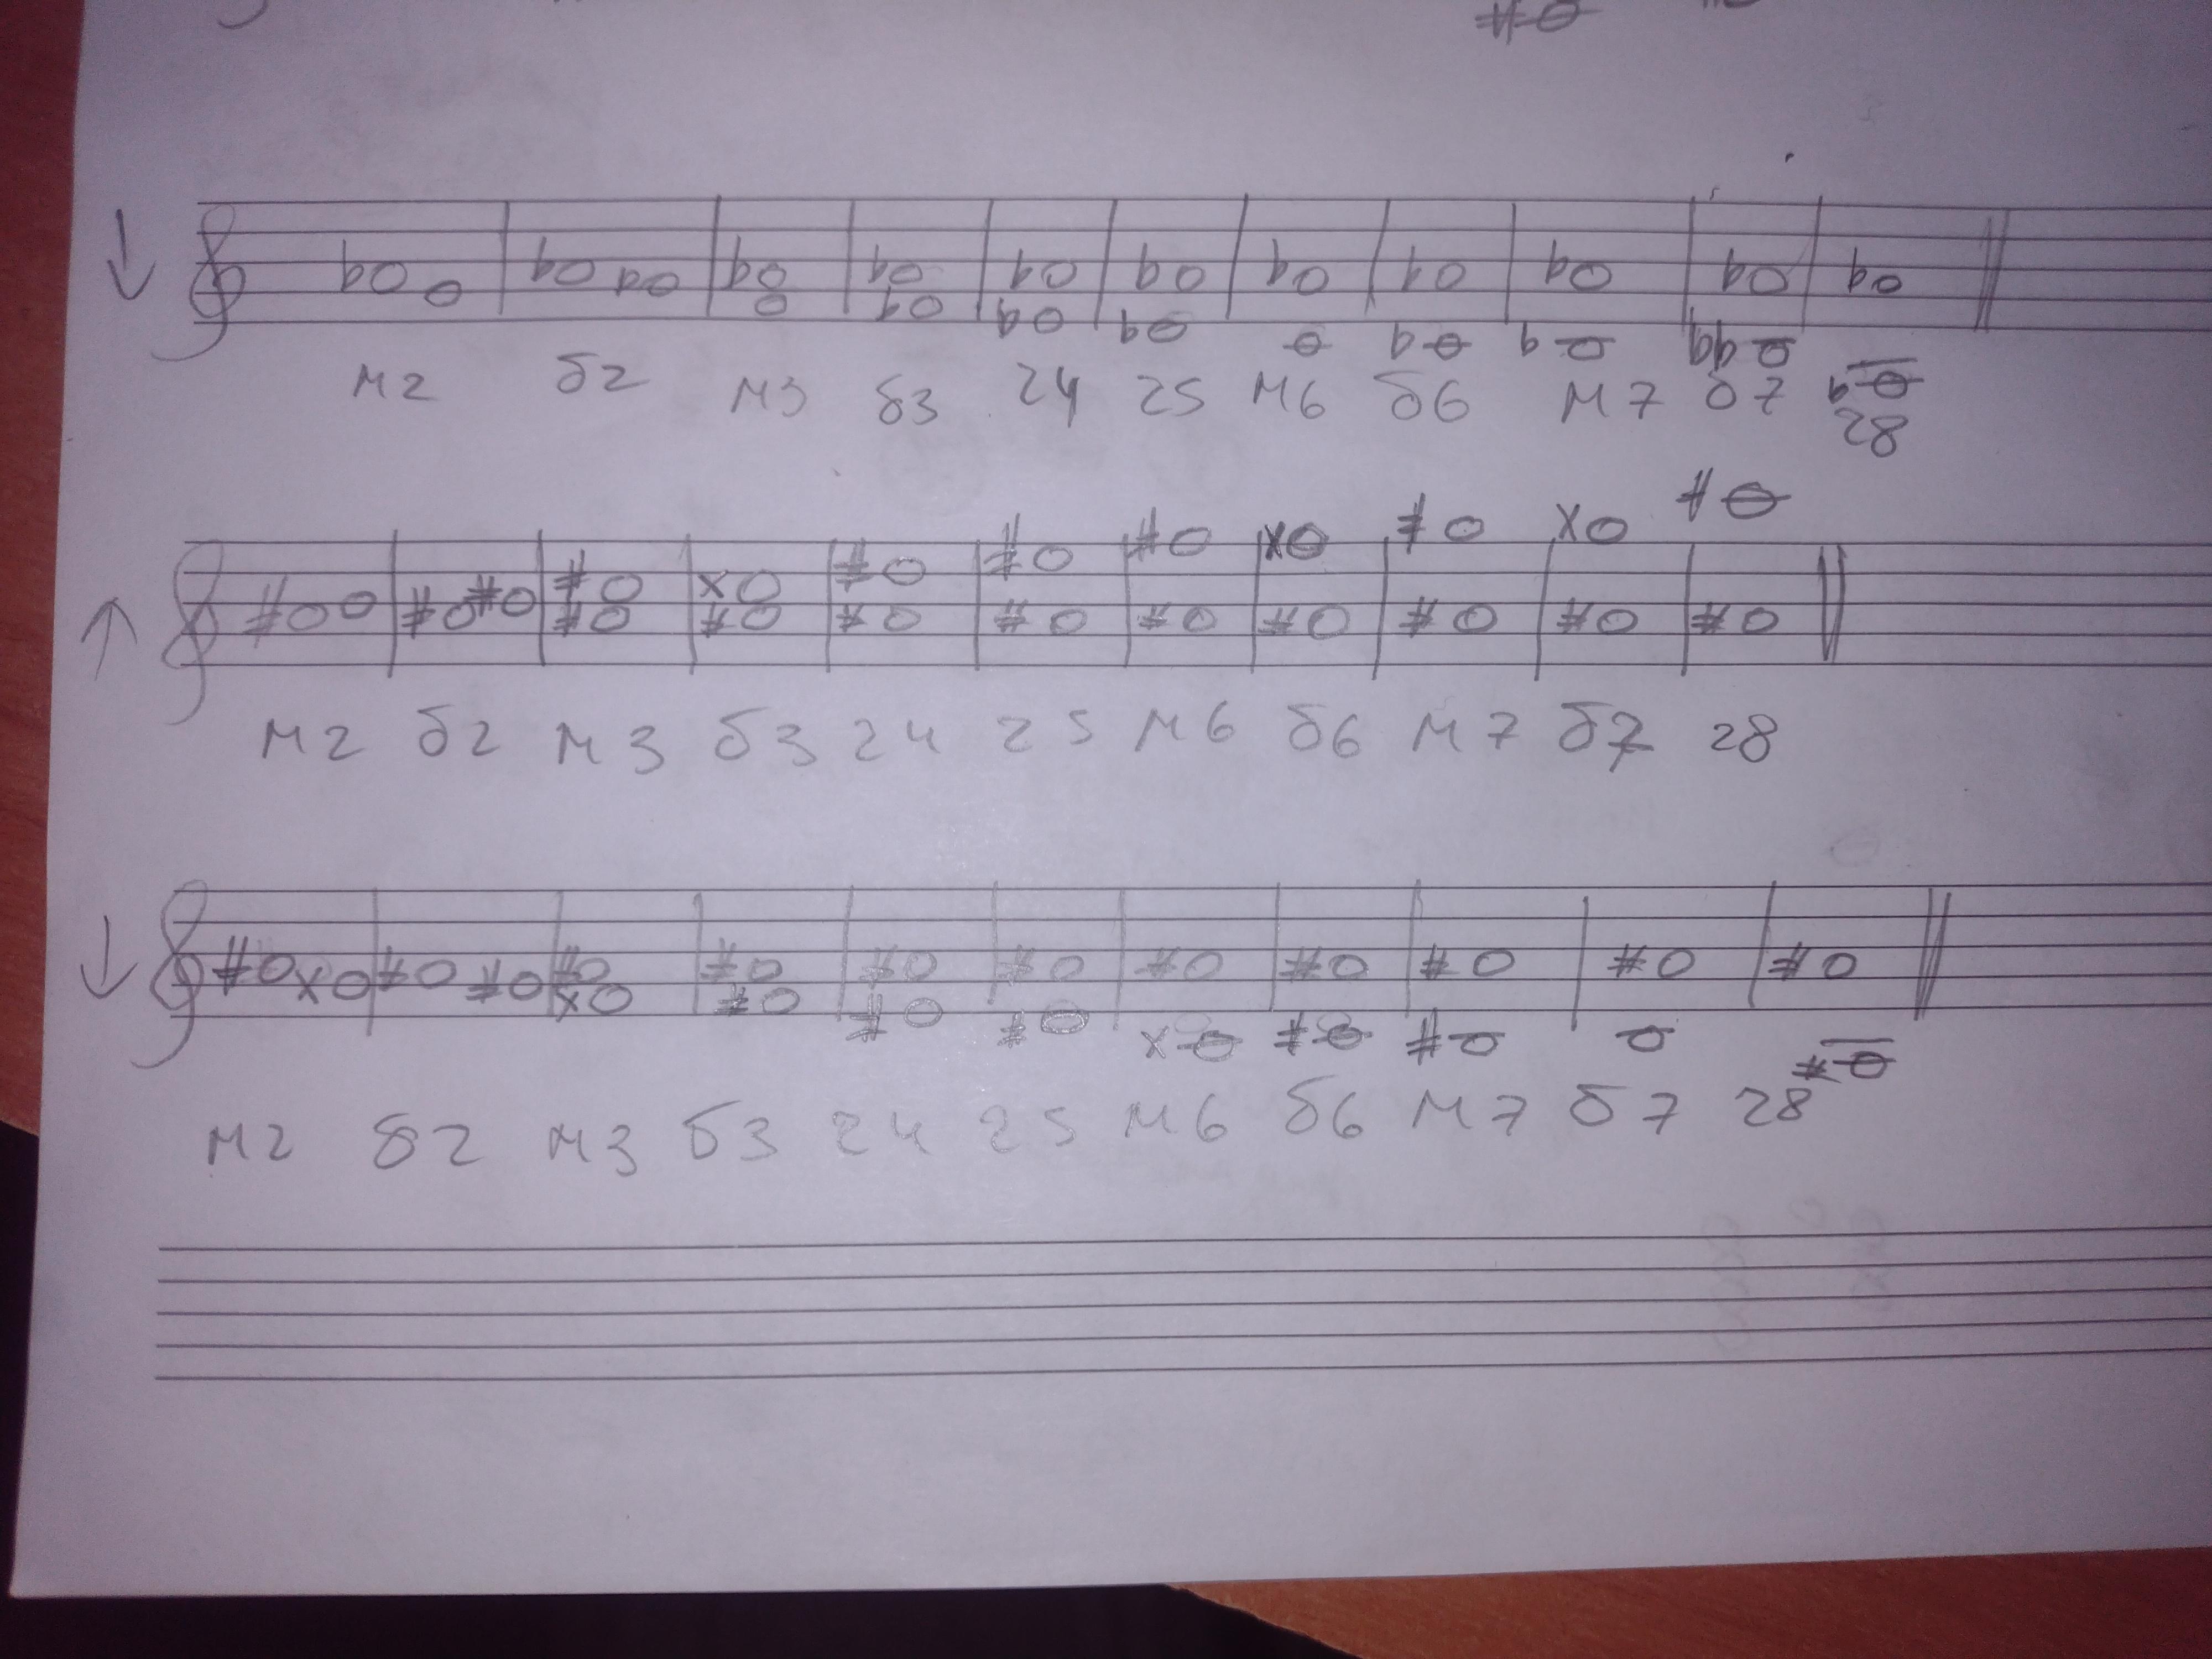 м2 б2 м3 б3 24 25 м6 б6 м7 б7 28
м2 б2 м3 б3 24 25 м6 б6 м7 б7 28
м2 б2 м3 б3 24 25 м6 б6 м7 б7 28